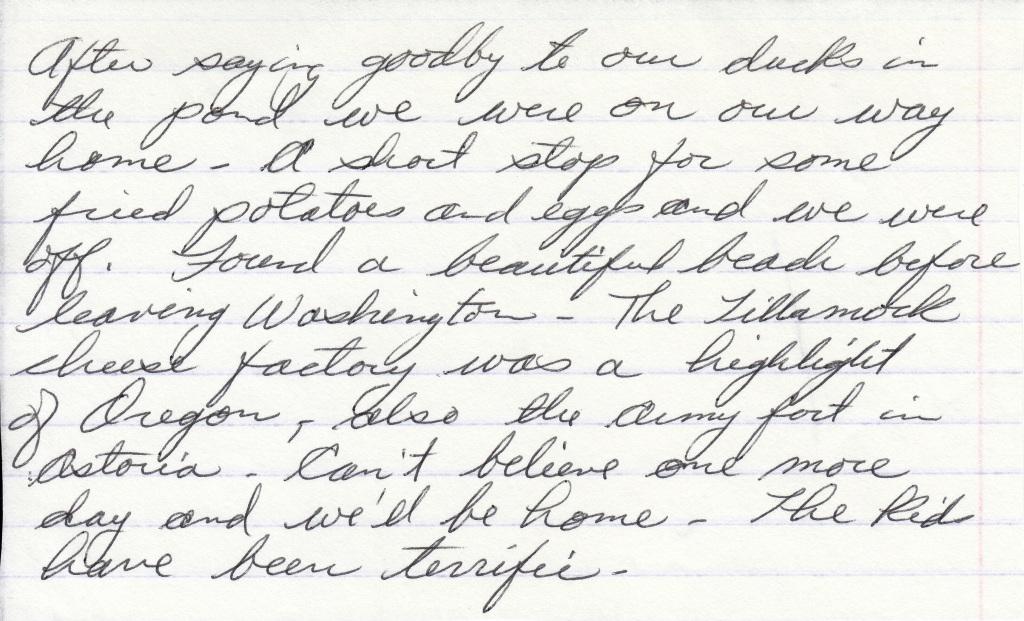 After saying goodby to our ducks in
the pond we were on our way
home - A short stop for some
fried potatoes and eggs and we were
off. Found a beautiful beach before
leaving Washington - The Tillamock
cheese factory was a highlight
of Oregon, also the army fort in
Astoria - Can't believe one more
day and we'd be home - The Kids
have been terrific -